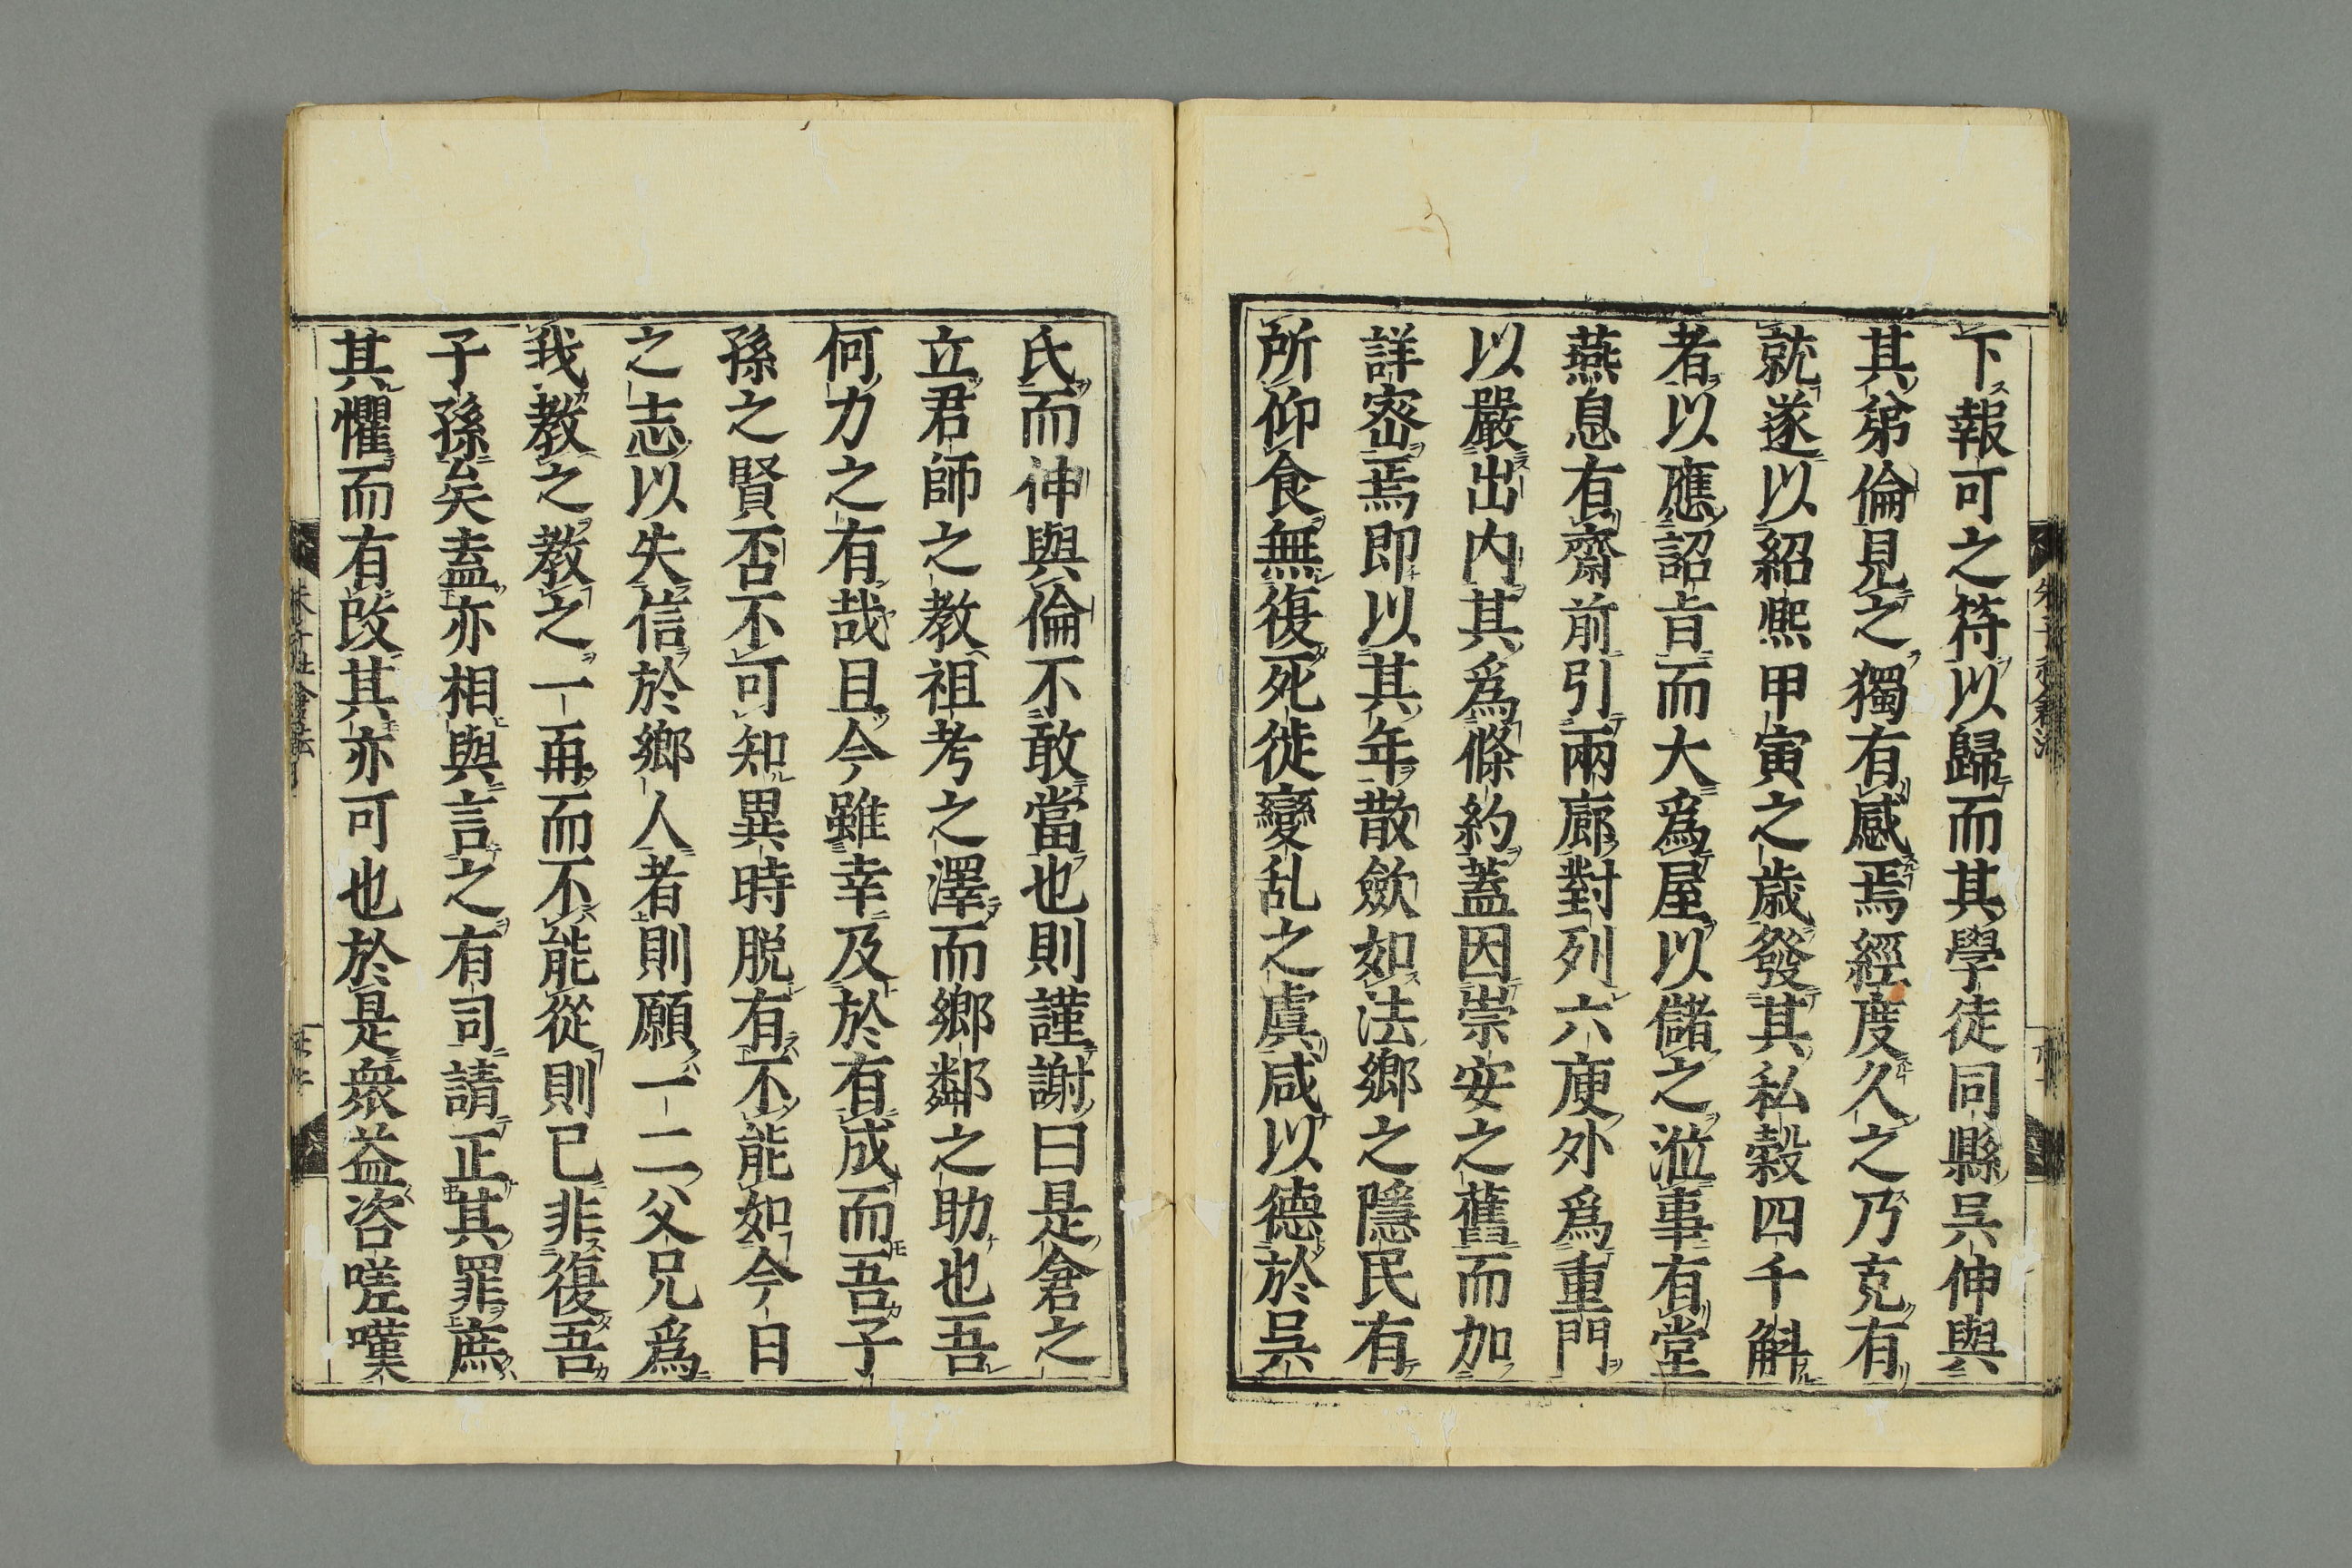 下報可之符以歸而其學徒同縣吳伸與
其弟倫見之獨有感焉經度久之乃克有
就遂以紹熙甲寅之歲發其私穀四千斛
者以應詔㫖而大爲屋以儲之涖事有堂
燕息有齋前引兩廊對列六庾外爲重門
以嚴出内其爲條約蓋因崇安之舊而加
詳宻焉即以其年散歛如法鄉之隱民有
所仰食無復死徙變乱之虞咸以德於吳
氏而伸與倫不敢當也則謹謝曰是倉之
立君師之教祖考之澤而鄉鄰之助也吾
何力之有哉且今雖幸及於有成而吾子
孫之賢否不可知異時脱有不能如今日
之志以失信於鄉人者則願一二父兄爲
我教之教之一再而不能從則已非復吾
子孫矣盍亦相與言之有司請正其罪庶
其懼而有改其亦可也於是衆益咨嗟嘆